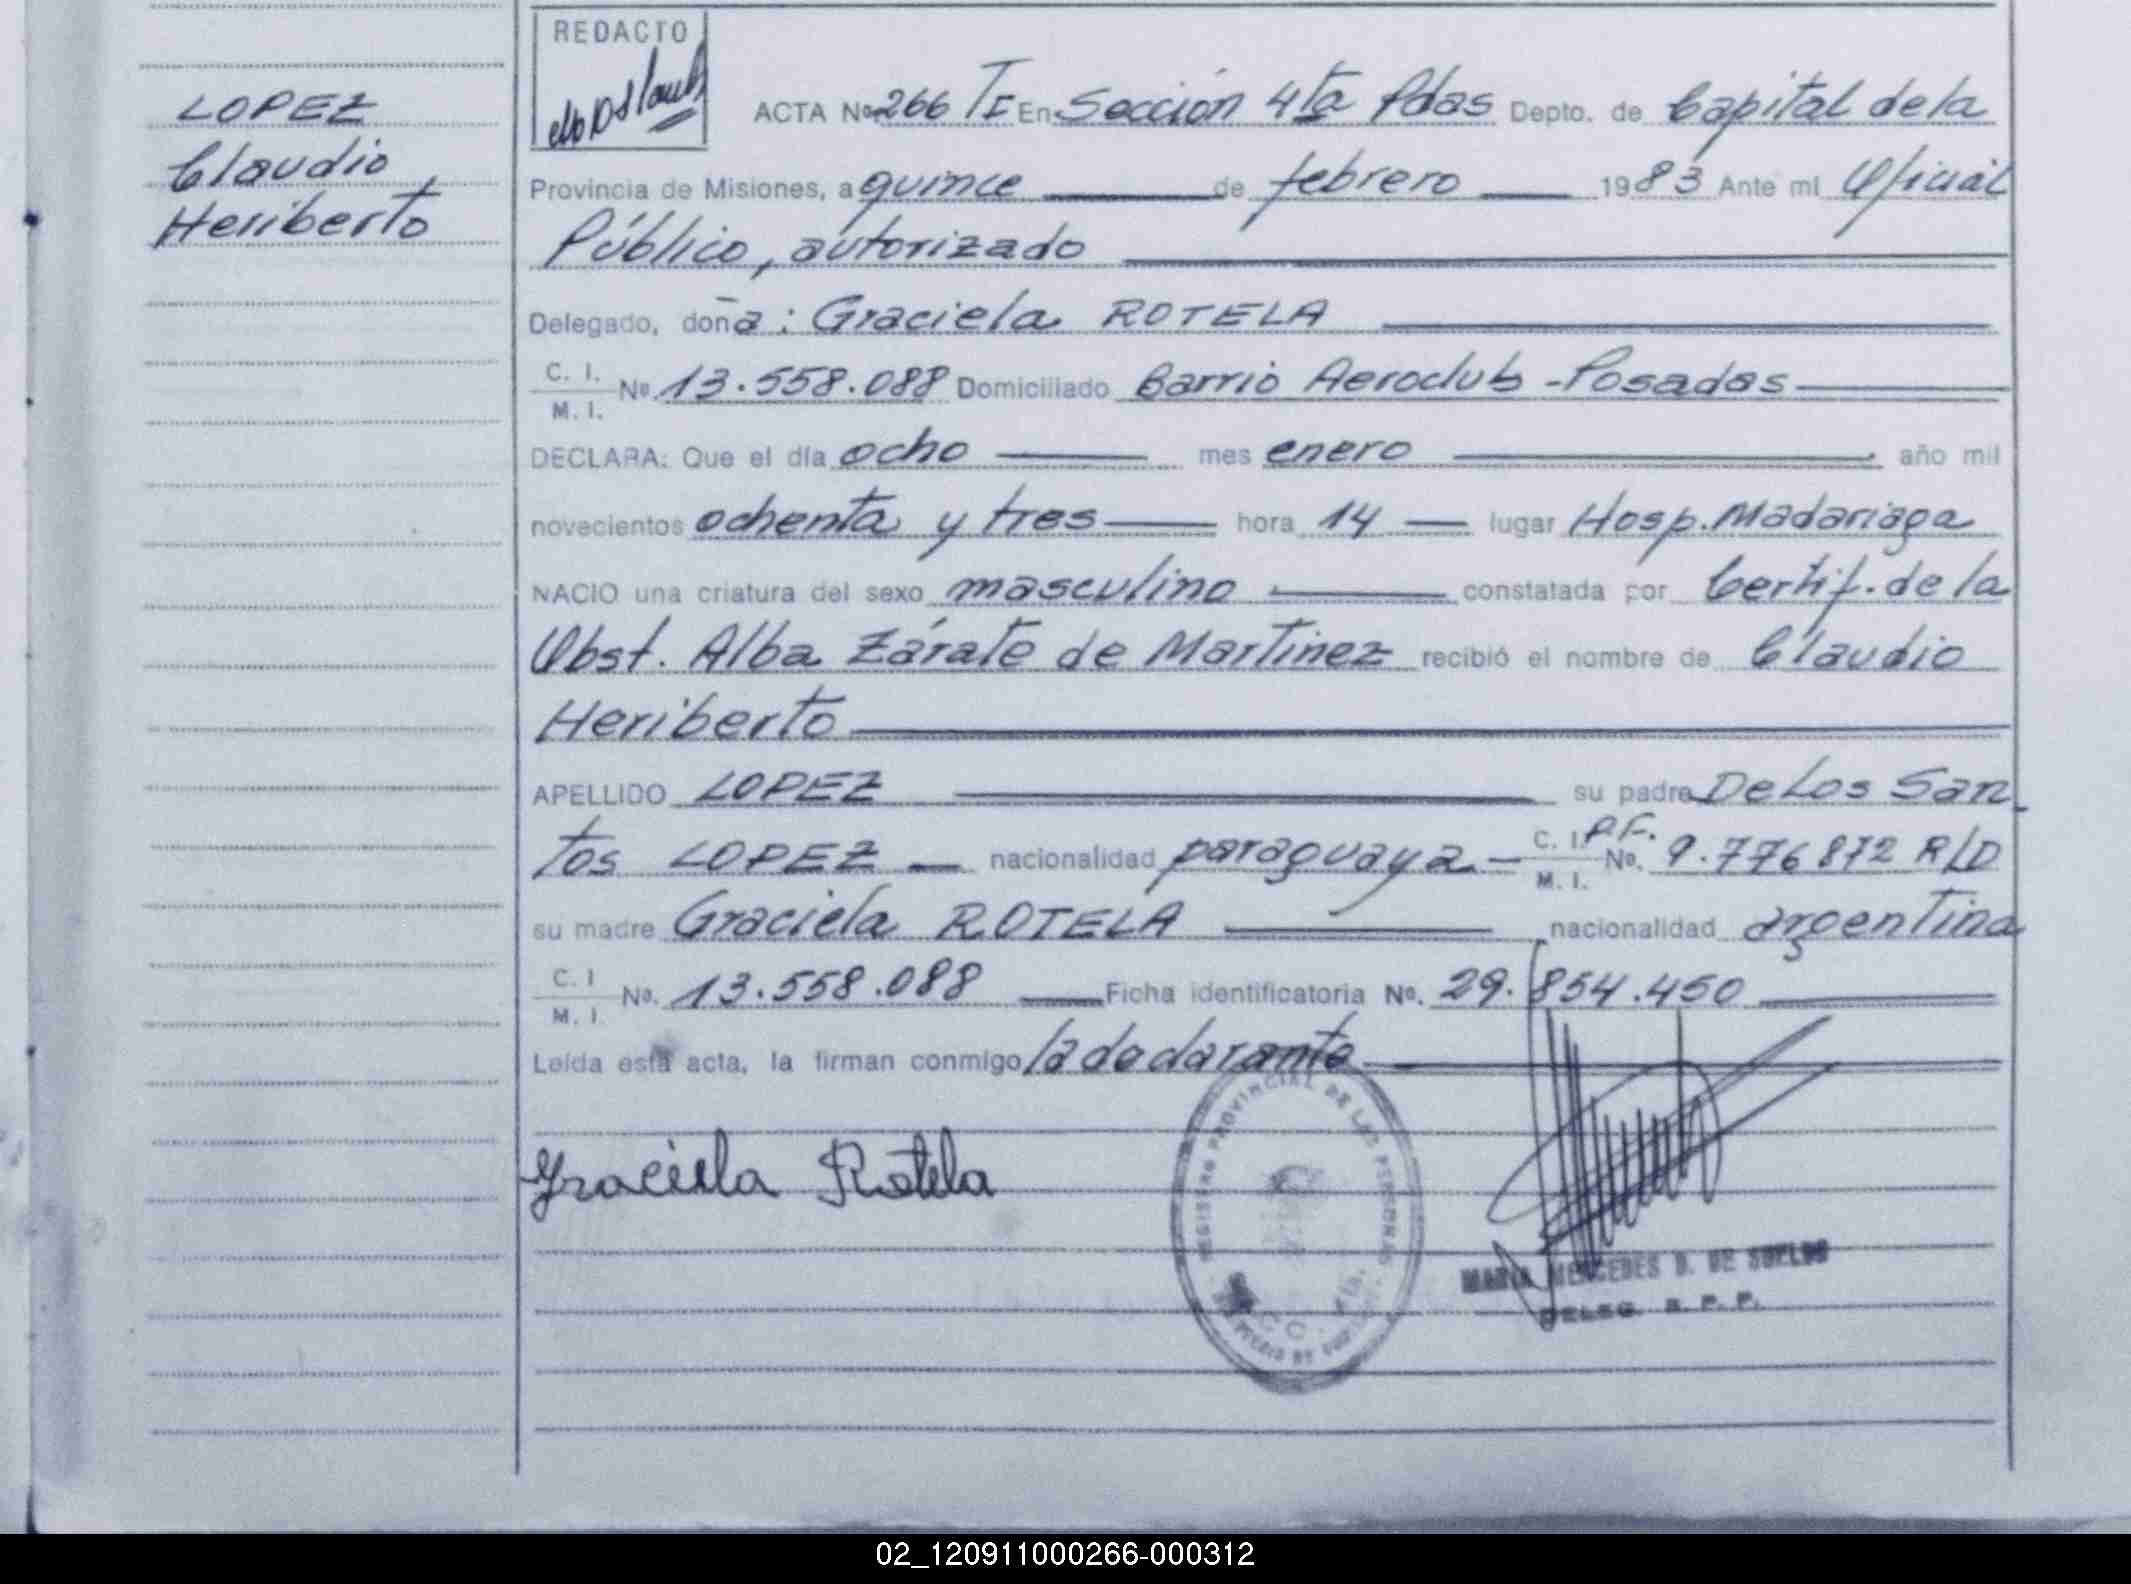 REDACTO
LOPEZ
Claudio
Heriberto
ACTA No 266 TI En Sección 4ta Pdas Depto. de Capital de la
Provincia de Misiones, a quince de febrero 1983 Ante mi Oficial
Público, autorizado
Delegado, doña: Graciela ROTELA
C. I.
M. I. No. 13.558.088 Domiciliado Barrio Aeroclub - Posadas
DECLARA: Que el día ocho mes enero año mil
novecientos ochenta y tres hora 14 lugar Hosp. Madariaga
NACIO una criatura del sexo masculino constatada por Certif. de la
Obst. Alba Zárate de Martinez recibió el nombre de Claudio
Heriberto
APELLIDO LOPEZ su padre De Los San
tos LOPEZ nacionalidad paraguaya C. I. P.F. M. I. No. 9.776872 R/D
su madre Graciela ROTELA nacionalidad argentina
C. I
M. I. No. 13.558.088 Ficha identificatoria No. 29.854.450
Leída esta acta, la firman conmigo la declarante
Graciela Rotela
REGISTRO PROVINCIAL DE LAS PERSONAS
MARIA MERCEDES D. DE
DELEG. R. P. P.
02_120911000266-000312